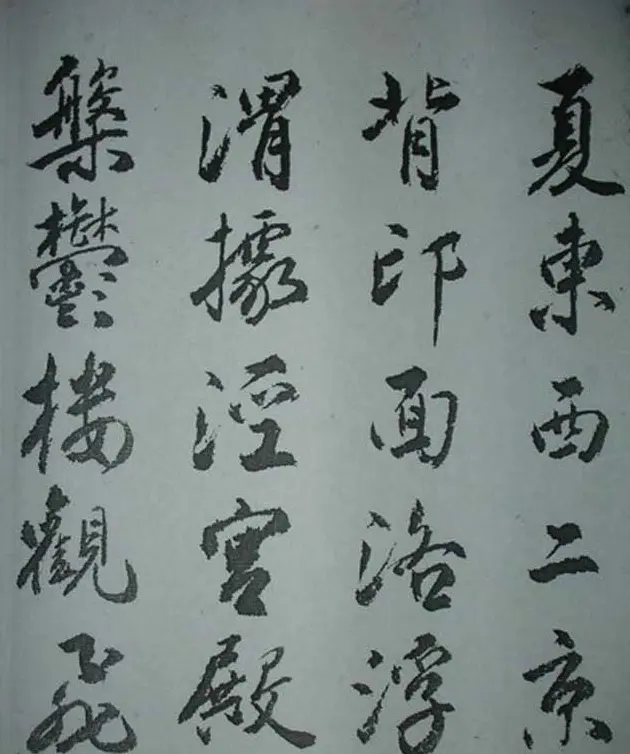 夏東西二京
背邙面洛浮
渭據涇宮殿
槃鬱樓觀飛